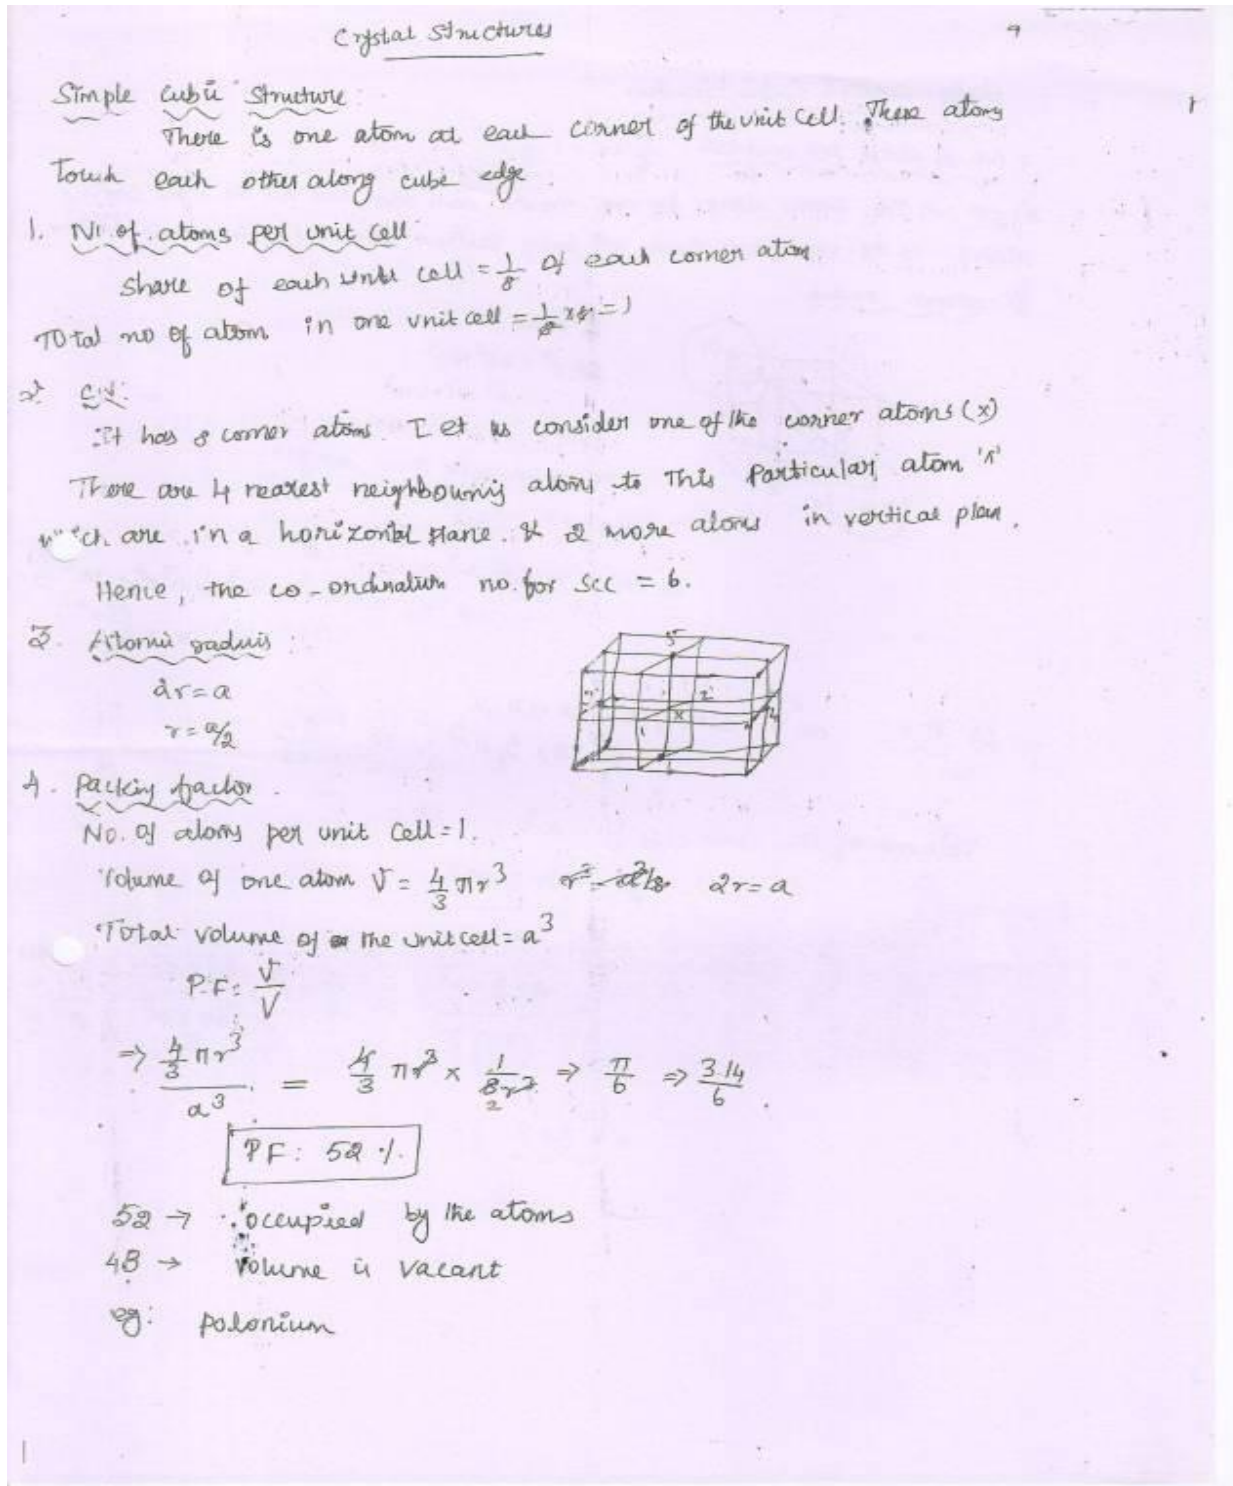 Crystal Structures
9
Simple Cubic Structure:
There is one atom at each corner of the unit cell. These atoms
1
Touch each other along cube edge.
1. No of. atoms per unit cell
Share of each unit cell = 1/8 of each corner atom.
Total no of atom in one unit cell = 1/8 x 8 = 1
2. C.N:
It has 8 corner atoms. Let us consider one of the corner atoms (x)
There are 4 nearest neighbouring atoms to this Particular atom 'x'
which are in a horizontal plane. & 2 more atoms in vertical plan.
Hence, the co-ordination no. for scc = 6.
3. Atomic radius:
2r = a
r = a/2
5
2
x
1
4. Packing factor.
No. of atoms per unit cell = 1.
Volume of one atom v = 4/3 πr³ 2r = a
Total volume of the unit cell = a³
P.F: v/V
⇒ 4/3 πr³ / a³ = 4/3 πr³ x 1/8r³ ⇒ π/6 ⇒ 3.14/6.
PF: 52 %.
52 → occupied by the atoms
48 → volume is vacant
eg: polonium